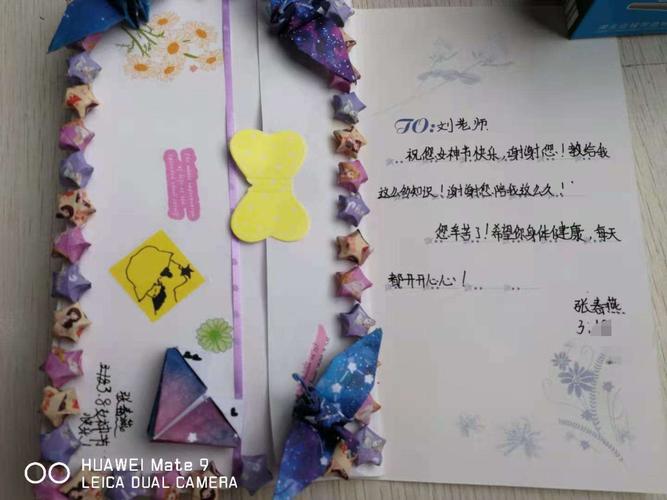 TO:刘老师
祝您女神节快乐,谢谢您!教给我
这么多知识!谢谢您陪我这么久!
您辛苦了!希望你身体健康,每天
都开开心心!
张春燕
3.
张春燕
3.8女神节
快乐!
HUAWEI Mate 9
LEICA DUAL CAMERA